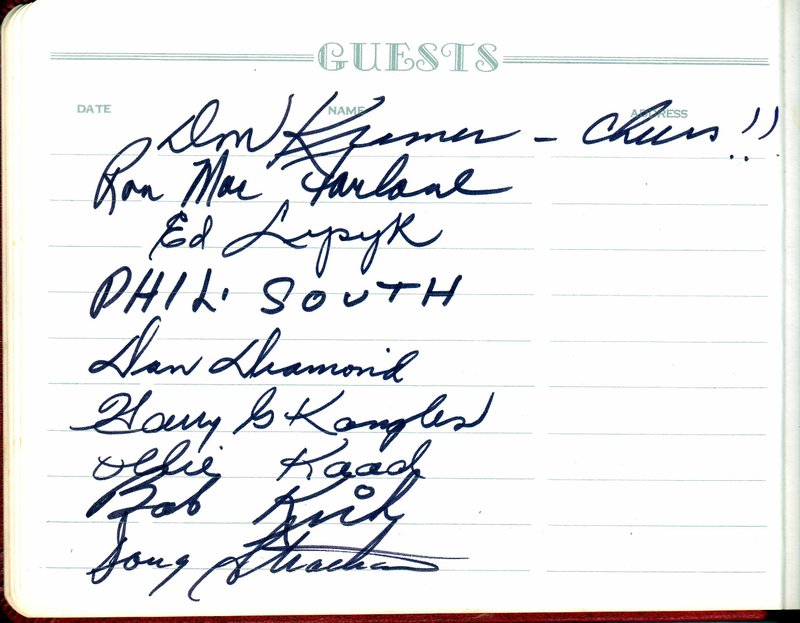 GUESTS
DATE NAME ADDRESS
Don Kramer - Cheers!!
Ron Mac Farlane
Ed Lupyk
PHIL SOUTH
Dan Diamond
Garry G Kangles
Ollie Kaad
Bob
Doug Strachan